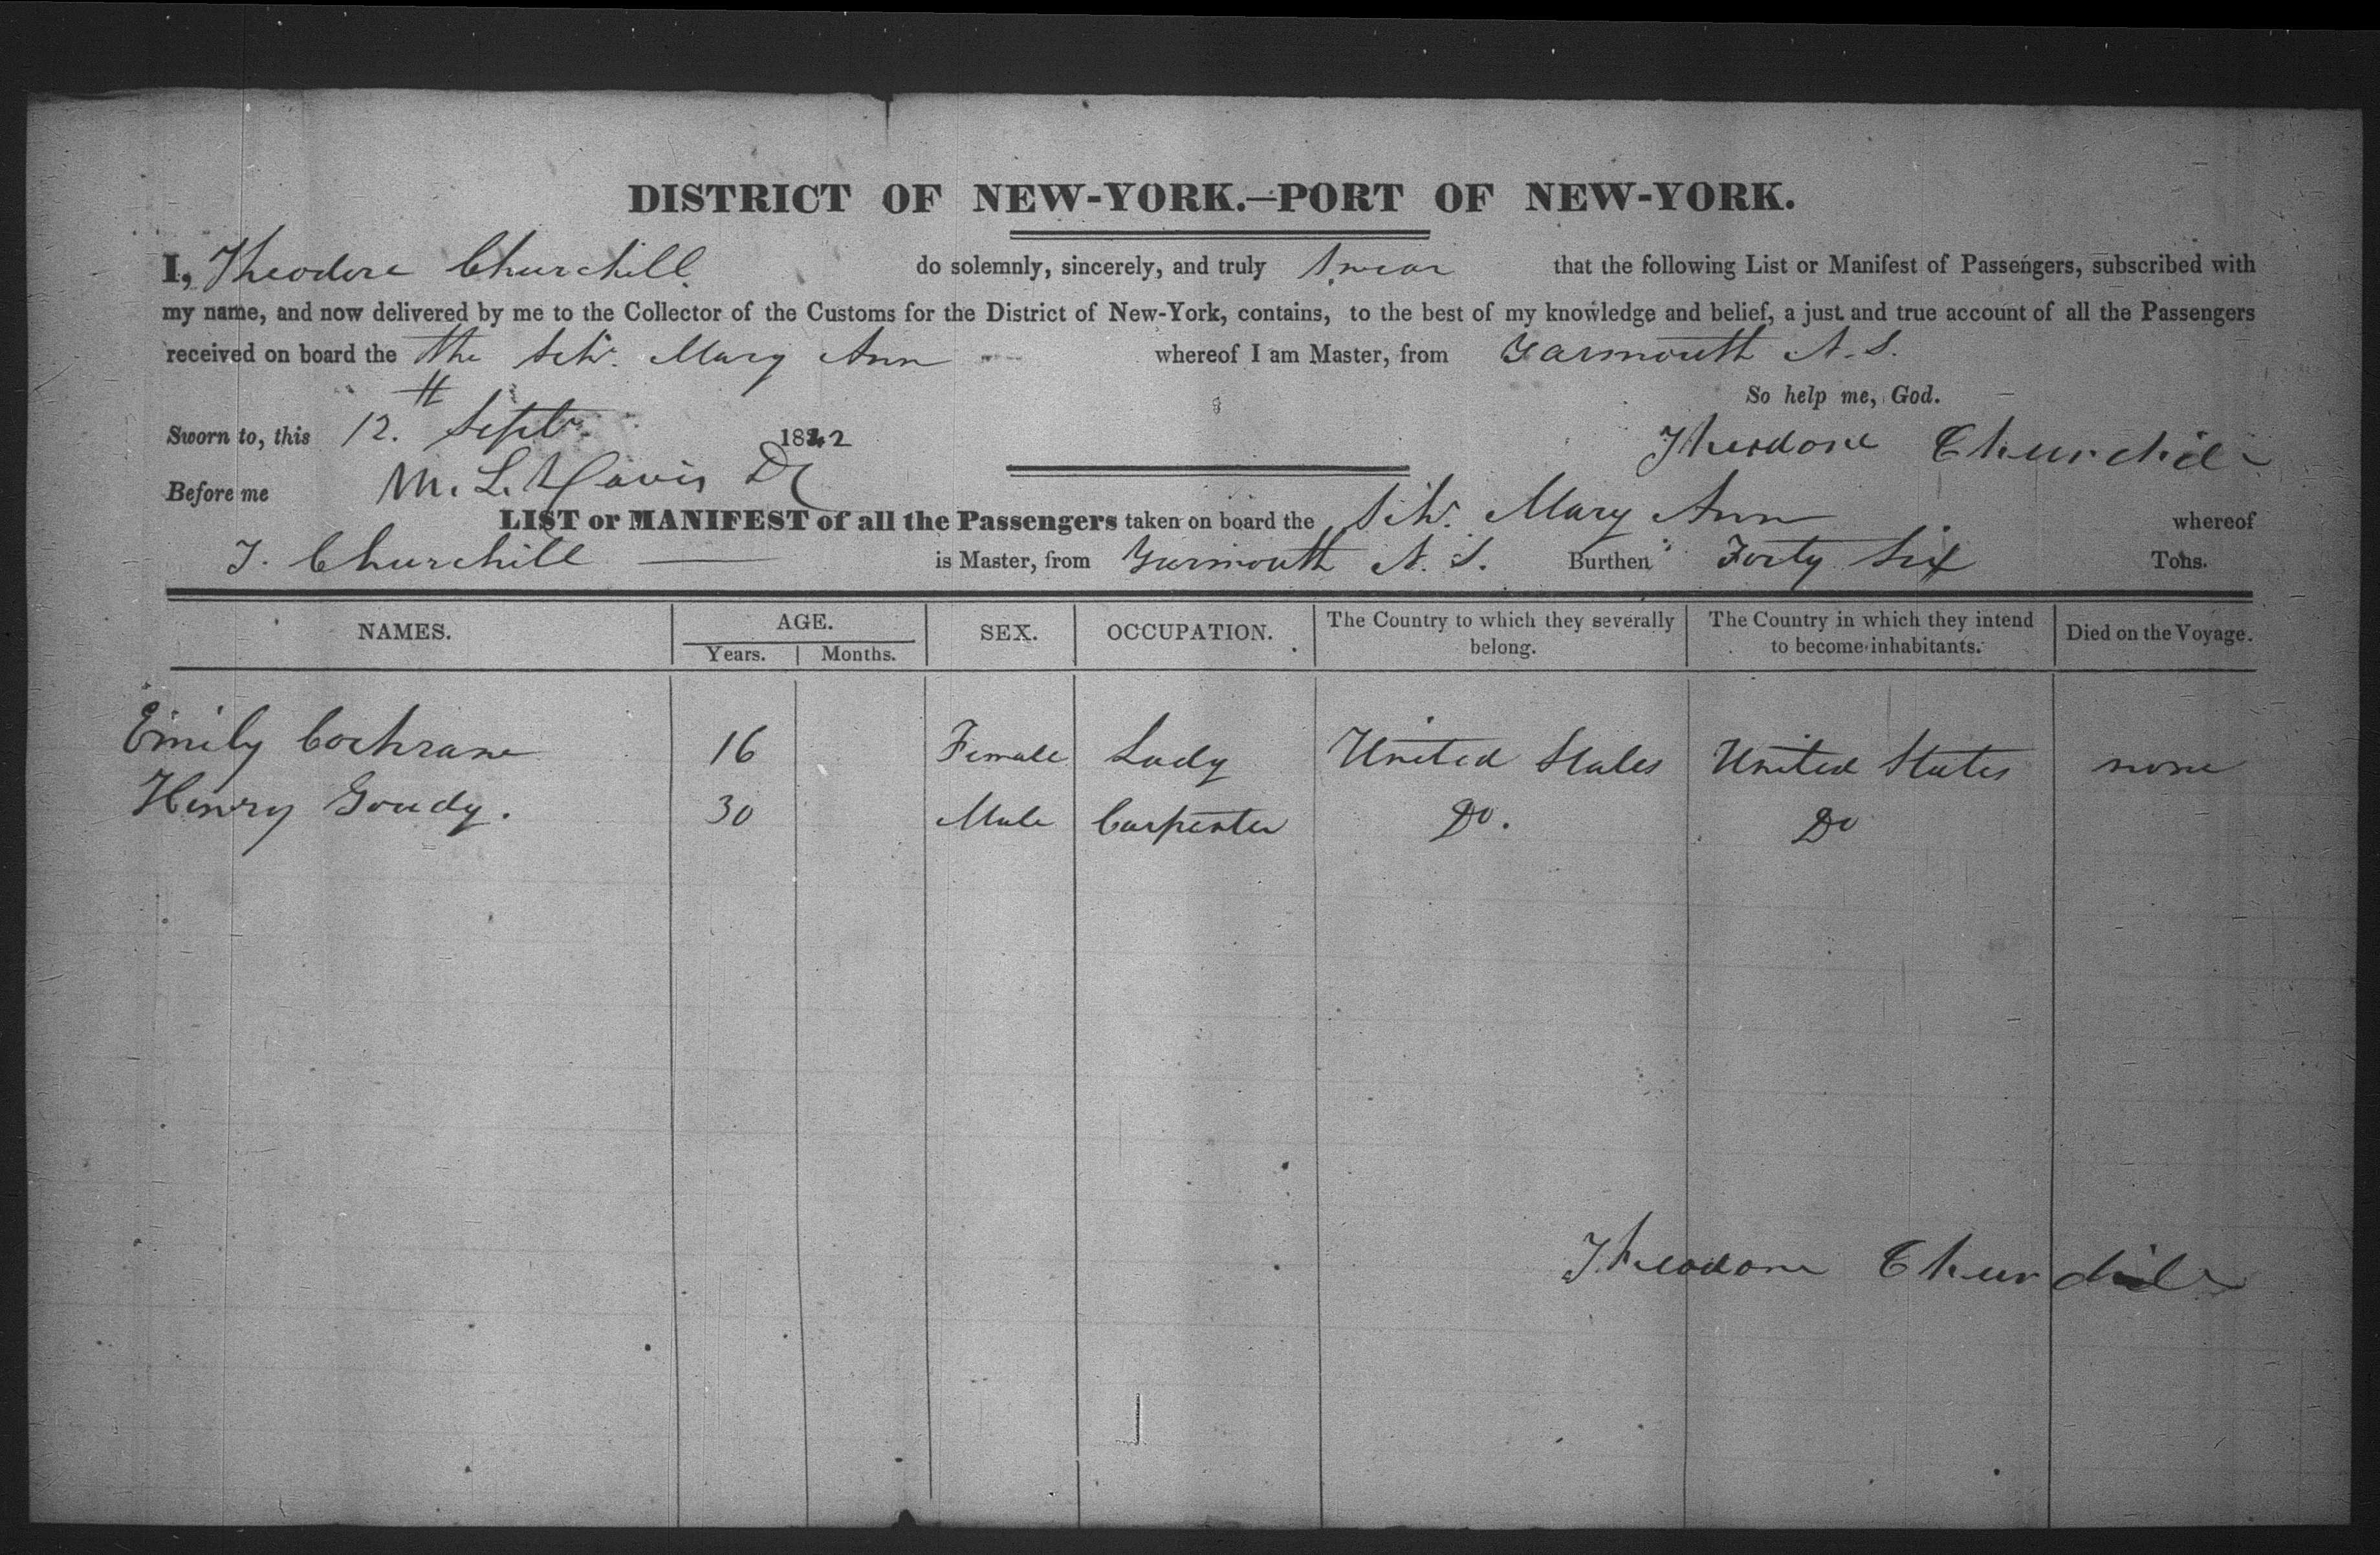 DISTRICT OF NEW-YORK.—PORT OF NEW-YORK.
I, Theodore Churchill do solemnly, sincerely, and truly Swear that the following List or Manifest of Passengers, subscribed with
my name, and now delivered by me to the Collector of the Customs for the District of New-York, contains, to the best of my knowledge and belief, a just and true account of all the Passengers
received on board the the Schr. Mary Ann whereof I am Master, from Yarmouth N. S.
So help me, God.
Sworn to, this 12th Septr. 1842 Theodore Churchill
Before me M. L. Davis
LIST or MANIFEST of all the Passengers taken on board the Schr. Mary Ann whereof
T. Churchill is Master, from Yarmouth N. S. Burthen Forty Six Tons.
NAMES. AGE. SEX. OCCUPATION. The Country to which they severally belong. The Country in which they intend to become inhabitants. Died on the Voyage.
Years. Months.
Emily Cochrane 16 Female Lady United States United States none
Henry Goudy. 30 Male Carpenter Do. Do
Theodore Churchill